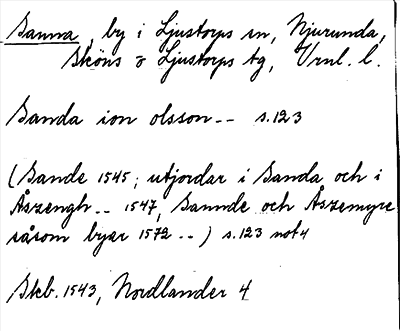 Sanna, by i Ljustorps sn, Njurunda,
Sköns o Ljustorps tg, Vrnl. l.
Sanda ion olsson -- s.123
(Sande 1545; utjordar i Sanda och i
Åszengh -- 1547, Sannde och Åszemyre
såsom byar 1572 -- ) s.123 not 4
Skb. 1543, Nordlander 4